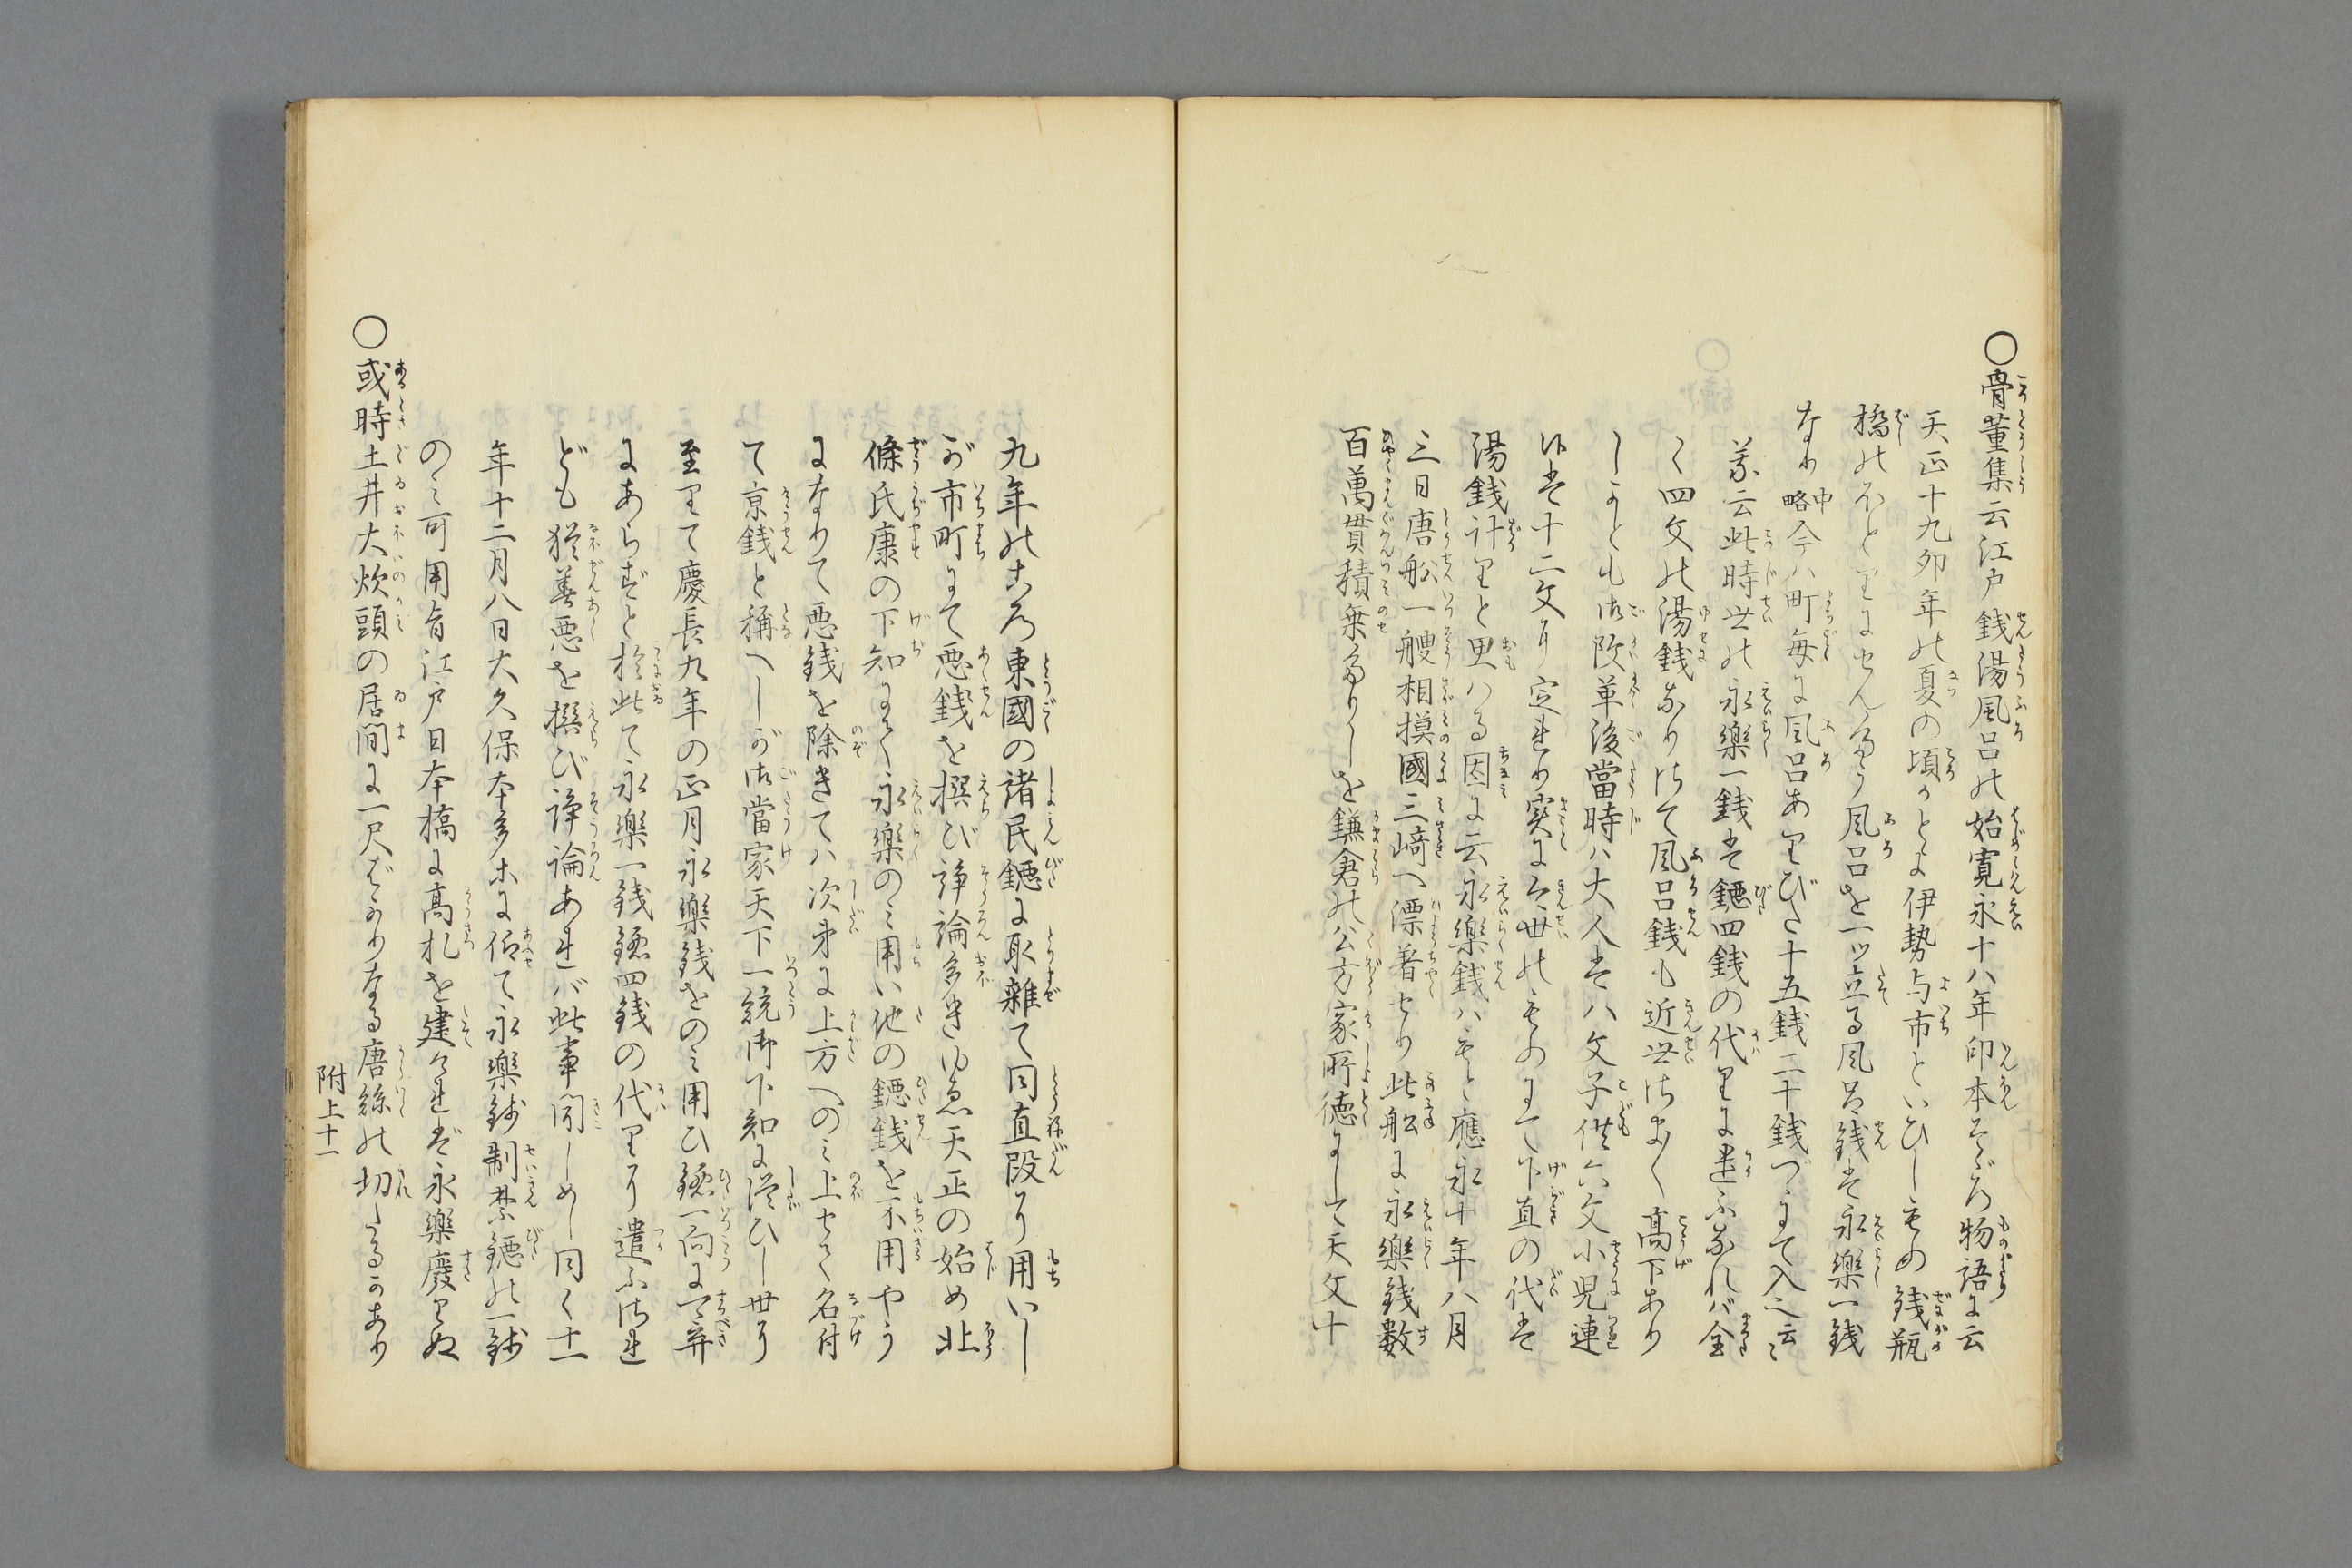 ○骨董集云江戸銭湯風呂の始寛永十八年印本そゞろ物語に云
天正十九卯年の夏の頃かとよ伊勢与市といひしもの銭瓶
橋のほとりにせんたう風呂を一ッ立る風呂銭は永樂一銭
なり中略今ハ町毎に風呂ありびた十五銭二十銭づゝにて入と云々
云此時世の永樂一銭は鐚四銭の代りに遣ふなれバ全
く四文の湯銭なり
風呂銭も近世
高下あり
しかども御改革後當時ハ大人は八文子供六文小児連
は十二文
定れり実に
下直の代は
湯銭計りと思ハる因に云永樂銭ハもと應永十年八月
三日唐舩一艘相摸國三﨑へ漂着せり此舩に永樂銭數
百萬貫積乗ありしを鎌倉の公方家所徳にして天文十
九年のころ東國の諸民鐚に取雑て同直段り用いし
が市町にて悪銭を撰び諍論多きゆゑ天正の始め北
條氏康の下知にて永樂のミ用い他の鐚銭を不用やう
になりて悪銭を除きてハ次第に上方へのミ上せて名付
て京銭と稱へしが御當家天下一統御下知に従ひし世り
至りて慶長九年の正月永樂銭をのミ用ひ鐚一向に可弃
にあらずと於此て永樂一銭鐚四銭の代りり遣ふ
ども猶善悪を撰び諍論あれバ此事聞しめし同く十一
年十二月八日大久保本多ホに仰て永樂銭制禁鐚の一銭
のミ可用旨江戸日本橋に高札を建
永樂廢りぬ
○或時土井大炊頭の居間に一尺ばかりなる唐絲の切たるかあり
附上十一